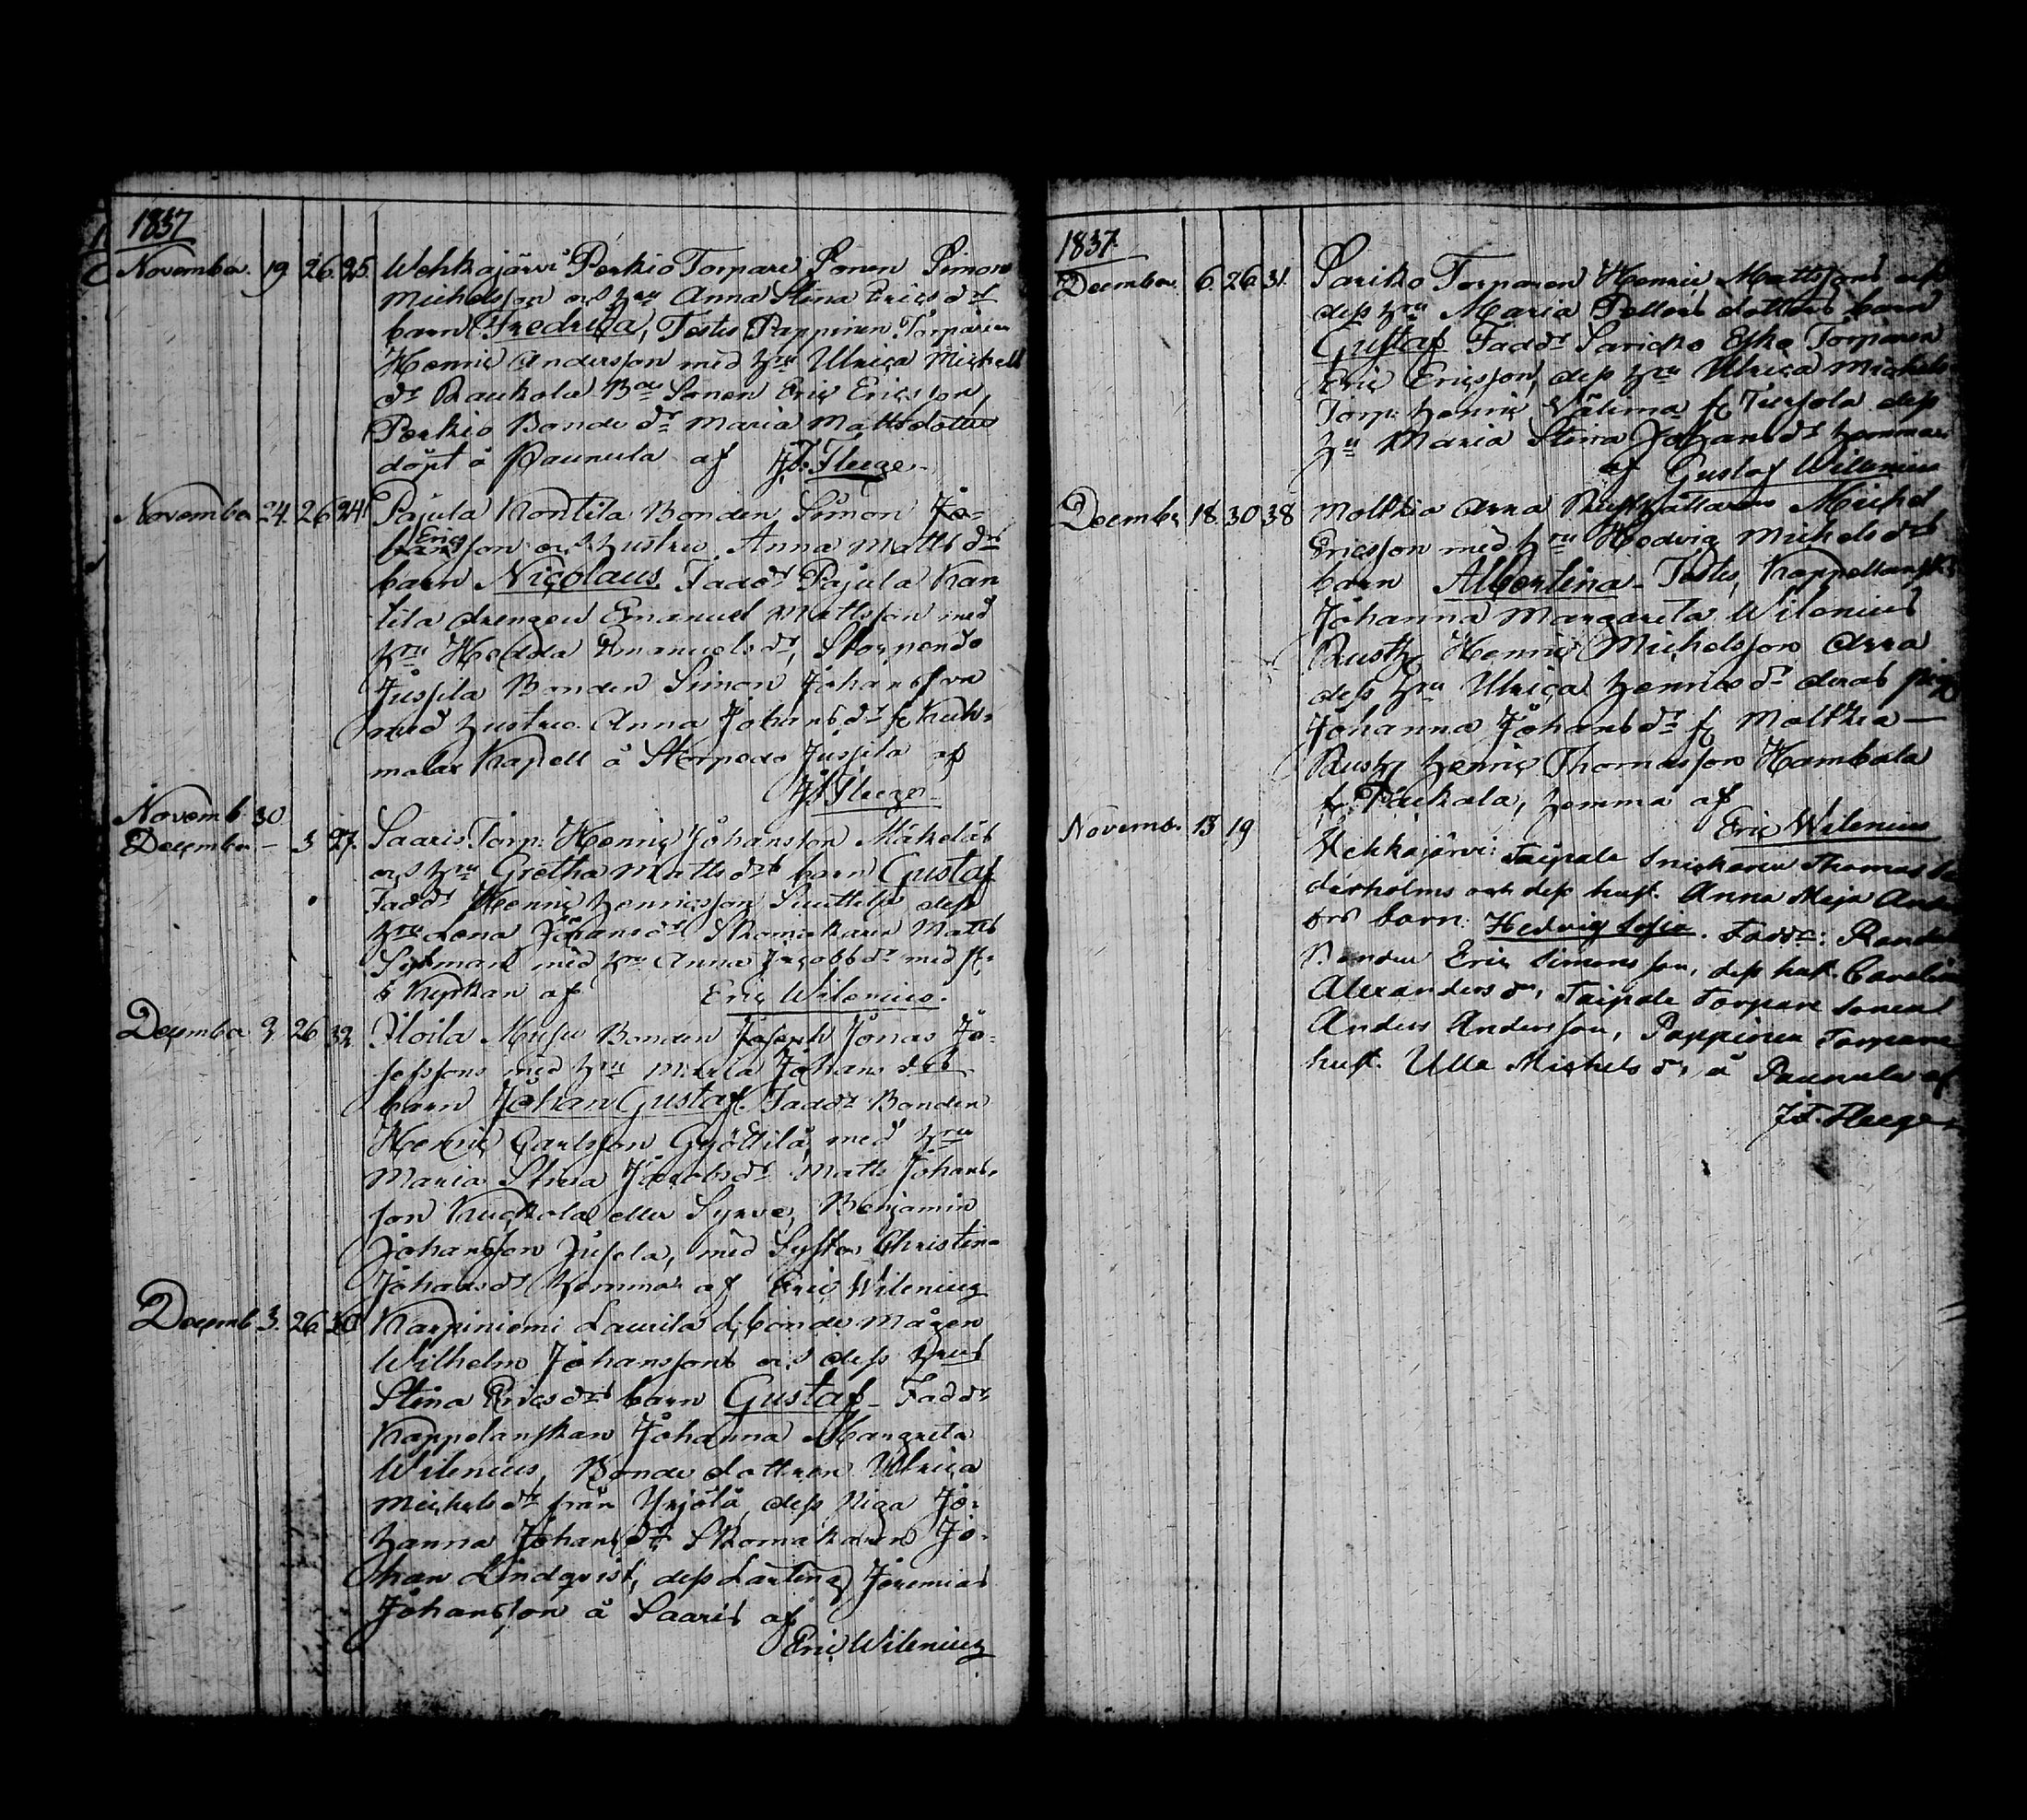 1837
November. 19 26. 25. Wehkajärvi Perkio Torpare Sonen Simon
Michelsson och hru Anna Stina Erics dr
barn Fredrica, Testes Pappinen Torparen
Henric Andersson med hru Ulrica Michels
dr Raukola Bde Sonen Eric Ericsson,
Perkio Bonde dr Maria Mattsdotter
döpt å Paunula af J.F. Fleege
November 24. 26 24 Pajula Kontila Bonden Simon Jo-
Eric
son och hustru Anna Matts drs
barn Nicolaus Faddr Pajula Kan
tila drengen Emanuel Mattsson med
hru Hedda Emanuels dr, Storpondo
Jussila Bonden Simon Johansson
med hustru Anna Johans dr fr Kuh-
malax Kapell å Storpodo Jussila af
J.F. Fleege
Novemb 30
December - 3 27. Saaris Torp. Henric Johansson Mäkeläs
och hru Gretha Matts drs barn Gustaf
Faddr Henric Henricsson Suuttila dess
hru Lena Johans dr Skomakaren Matts
med hru Anna Jacobs dr med fl.
i Kyrkan af Eric Wilenius.
December 3 26 32 Iloila Musu Bonden Joseph Jonas Jo-
sefssons med hru Maria Johans drs
barn Johan Gustaf. Faddr Bonden
Henric Carlsson Gyöttilä, med hru
Maria Stina Jacobs dr Matts Johans-
son Kuckola eller Syrve, Benjamin
Johansson Jusela, med Syster Christina
Johans dr hemma af Eric Wilenius
Decemb 3. 26. 30 Karpiniemi Laurila d. bonde mågen
Wilhelm Johanssons och dess hrus
Stina Erics drs barn Gustaf - Faddr
Kappelanskan Johanna Margreta
Wilenius, Bonde dottren Ulrica
Michels dr från Yrjölä, dess Piga Jo-
hanna Johans dr Skomakaren Jo-
han Lindqvist, dess Lärling Jeremias
Johansson å Saaris af
Eric Wilenius
1837.
December. 6. 26 31. Sariko Torparen Henric Mattssons och
dess hru Maria Petters dotters barn
Gustaf Faddr Saricko Esko Torparen
Eric Ericsson, dess hru Ulrica Michels
Torp. Henric Välima fr Tursola dess
hu Maria Stina Johans dr hemma
af Gustaf Wilenius
Decembr 18. 30 38 Molkkia Arra Rusthållaren Michel
Ericsson med hru Hedvig Michels drs
barn Albertina - Testes, Kappellansk
Johanna Margareta Wilenius
Rusth. Henric Michelsson Arra
dess hru Ulrica Henrics dr deras piga
Johanna Johans dr fr Molkkia -
Rusth. Henric Thomasson Hambala
fr. Taukala, hemma af
Eric Wilenius
Novembr. 13 19 Vehkajärvi: Taipale Snickaren Thomas Se
derholms och dess hust. Anna Maja Anders
drs barn: Hedvig Sofia. Faddr: Randen
Bonden Eric Simonsson, dess hust. Carolina
Alexanders dr, Taipale Torpare Sonen
Anders Andersson, Pappinen Torpare
hust. Ulla Michels dr, å Paunula af
J.F. Fleege